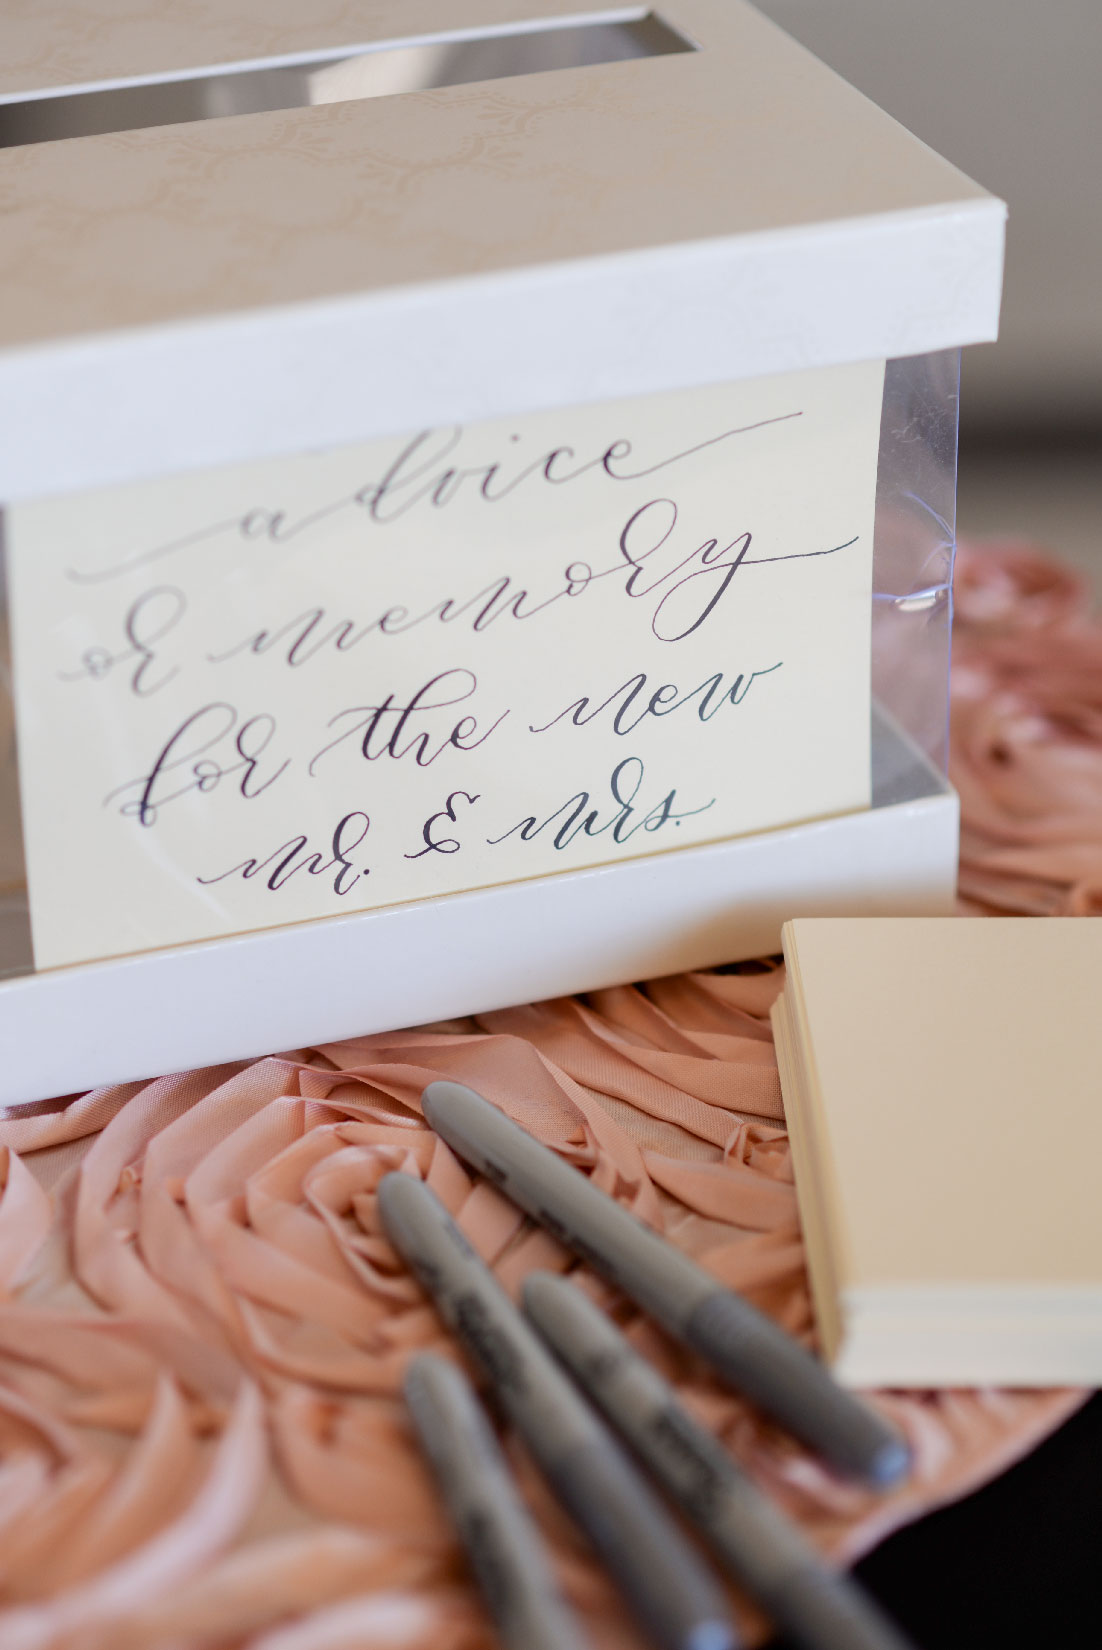 advice
or memory
for the new
mr. & mrs.